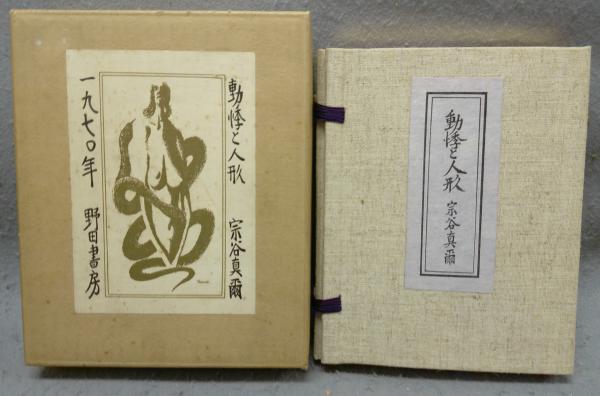 動悸と人形
宗谷真爾
一九七〇年
野田書房
動悸と人形
宗谷真爾